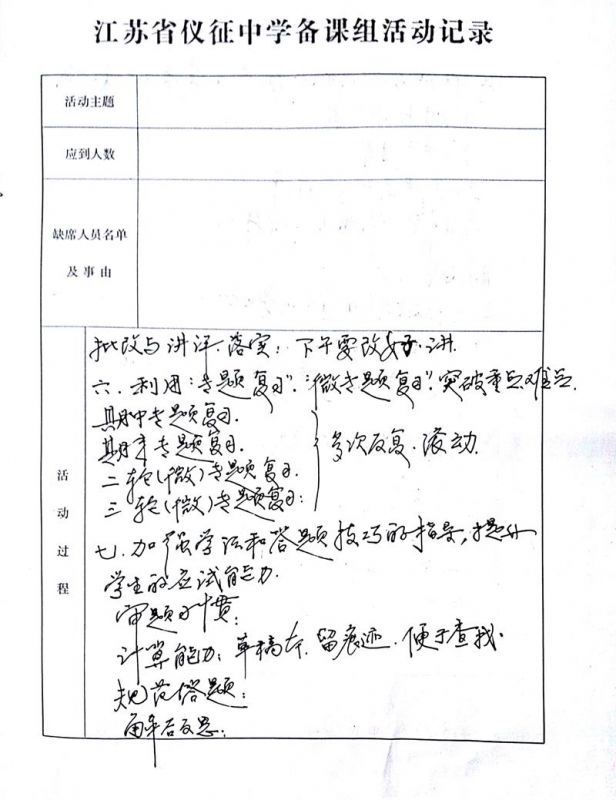 江苏省仪征中学备课组活动记录
活动主题
应到人数
缺席人员名单
及事由
活动过程
批改与讲评.落实:下午要改好.讲.
六.利用:“专题复习”.“微专题复习”.突破重点难点.
期中专题复习.
期末专题复习.
二轮(微)专题复习.
三轮(微)专题复习.
多次反复.滚动.
七.加强学法和答题技巧的指导,提升
学生的应试能力.
审题习惯:
计算能力:草稿本.留痕迹.便于查找.
规范答题:
解后反思: